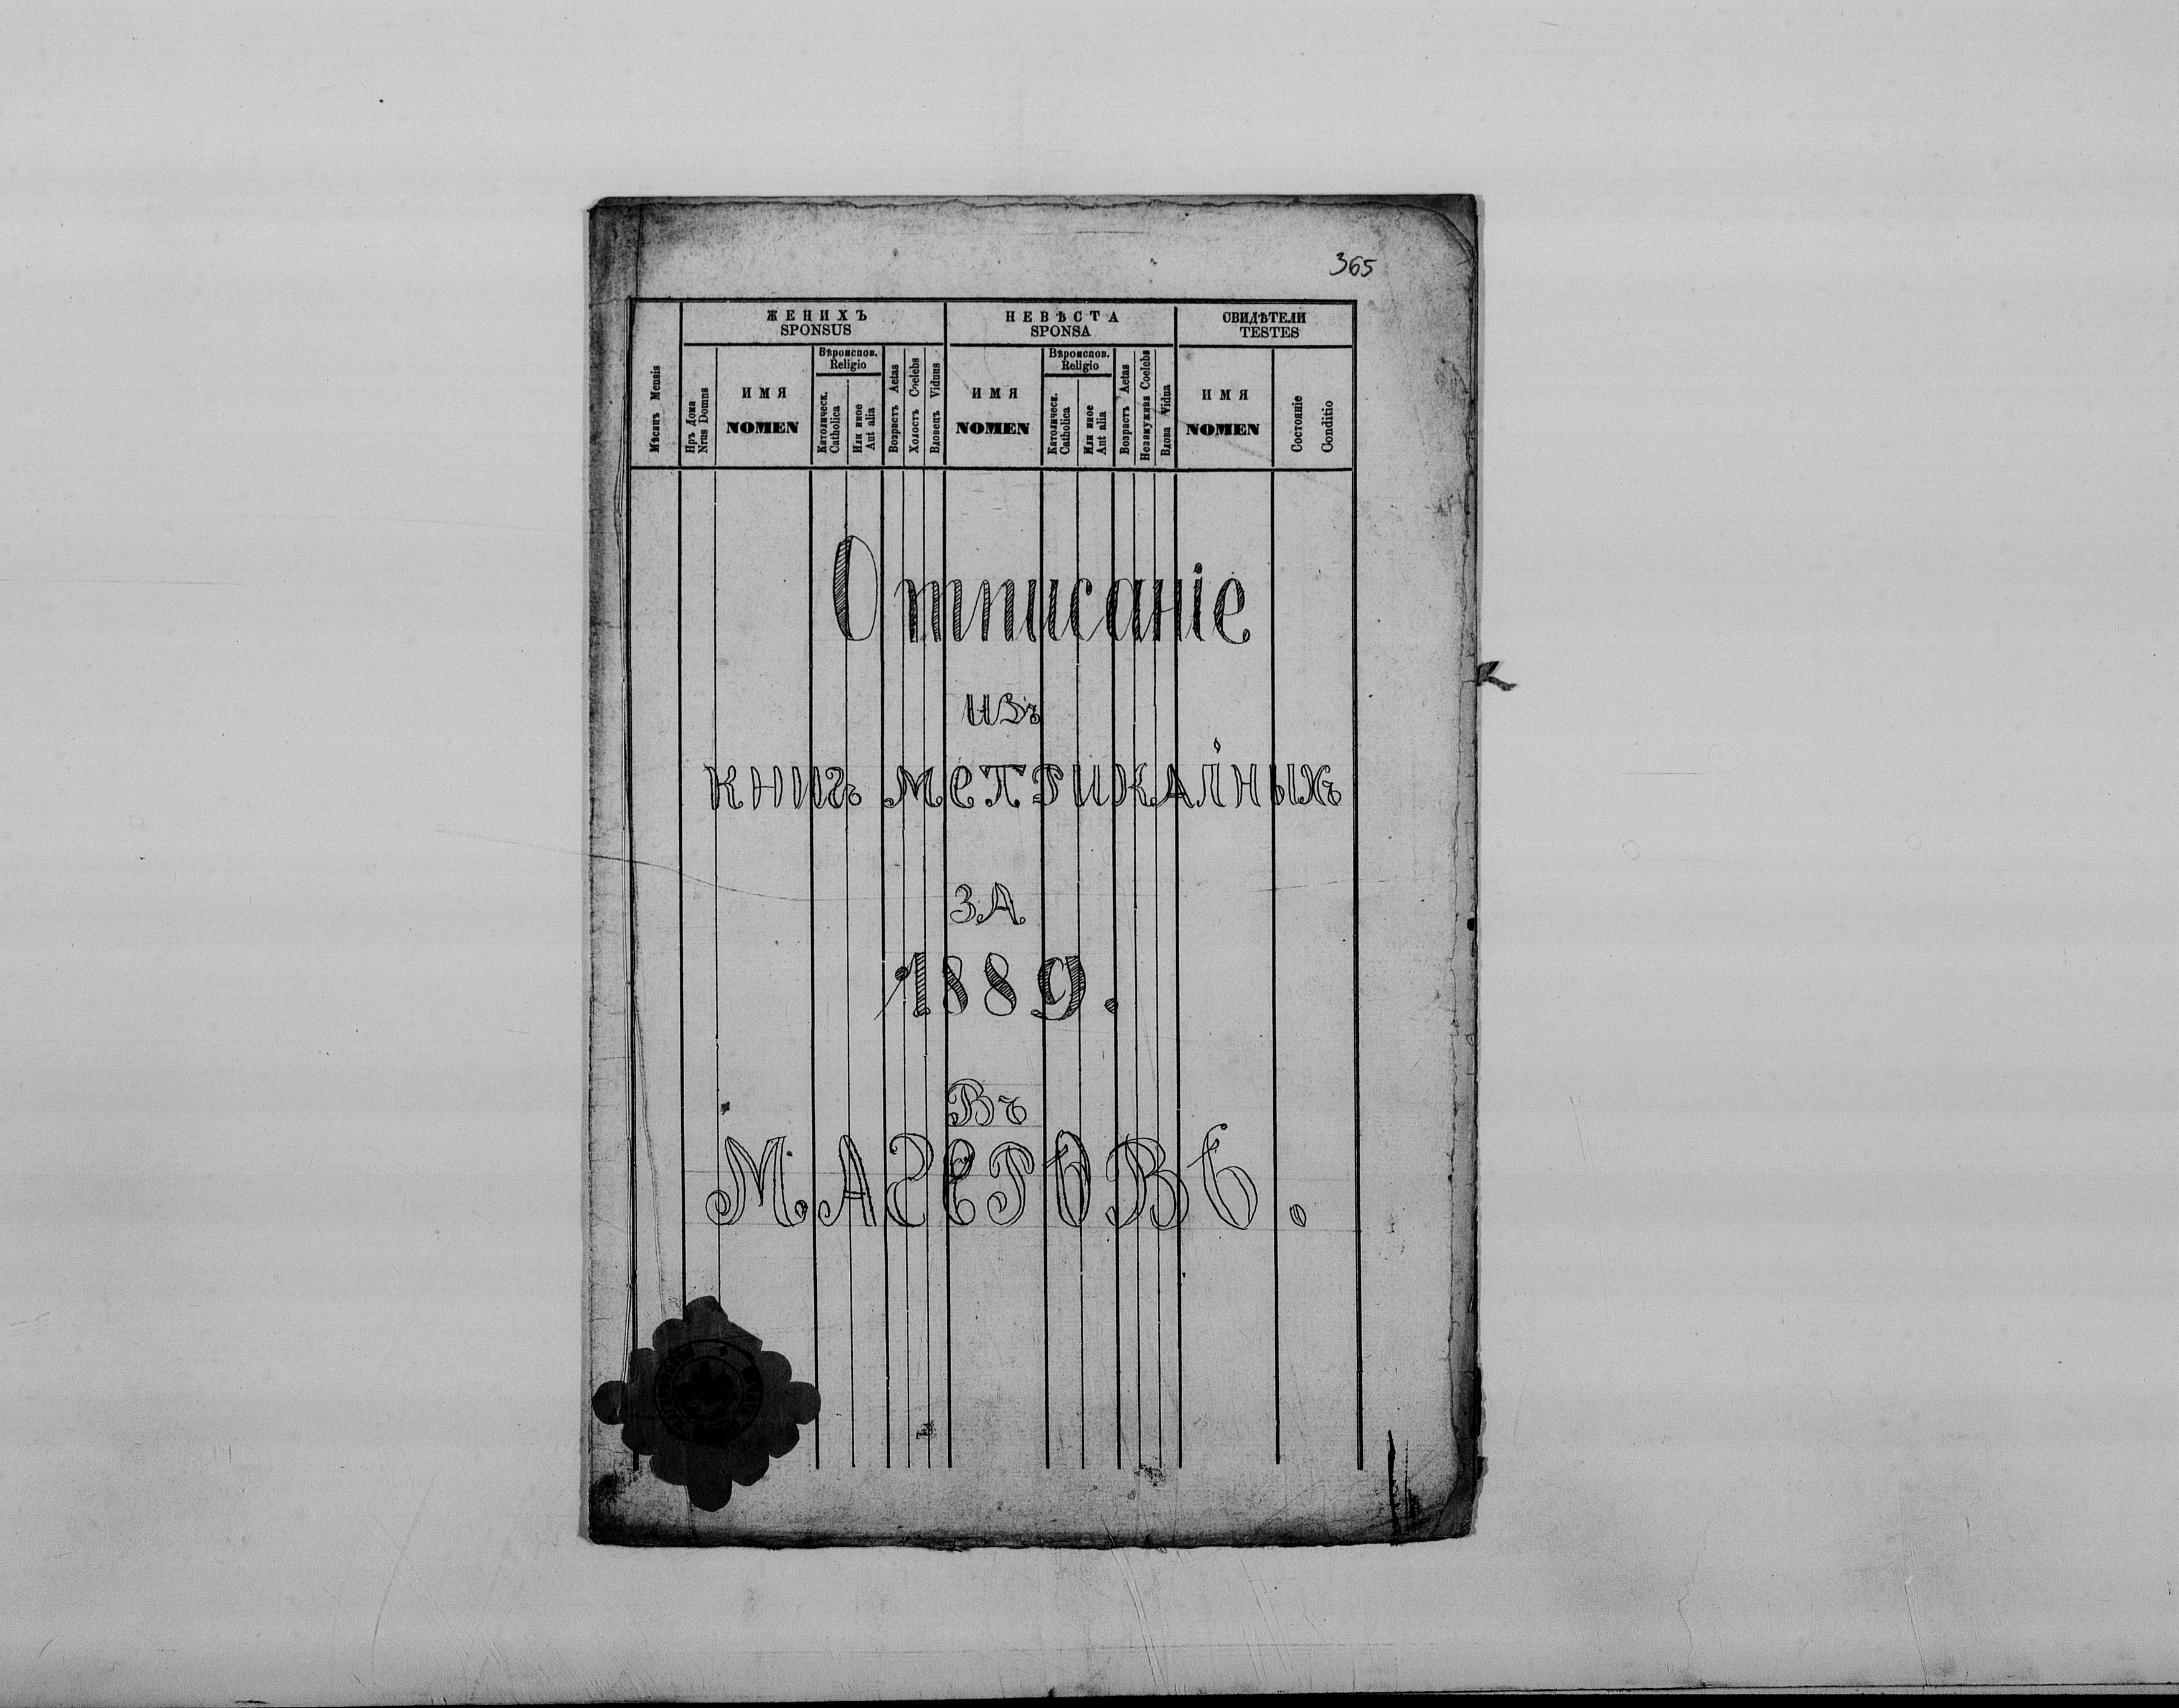 365
ЖЕНИХЪ
SPONSUS
НЕВѢСТА
SPONSA
СВИДѢТЕЛИ
TESTES
Мѣсяцъ Mensis
Нръ Дома
Nrus Domns
ИМЯ
NOMEN
Вѣроиспов.
Religio
Католическ.
Catholica
Или иное
Aut alia
Возрастъ Aetas
Холостъ Coelebs
Вдовецъ Viduus
ИМЯ
NOMEN
Вѣроиспов.
Religio
Католическ.
Catholica
Или иное
Aut alia
Возрастъ Aetas
Незамужная Coelebs
Вдова Vidua
ИМЯ
NOMEN
Состояніе
Conditio
Отписаніе
изъ
книгъ метрикальныхъ
за
1889.
Въ
МАГЕРОВѢ.